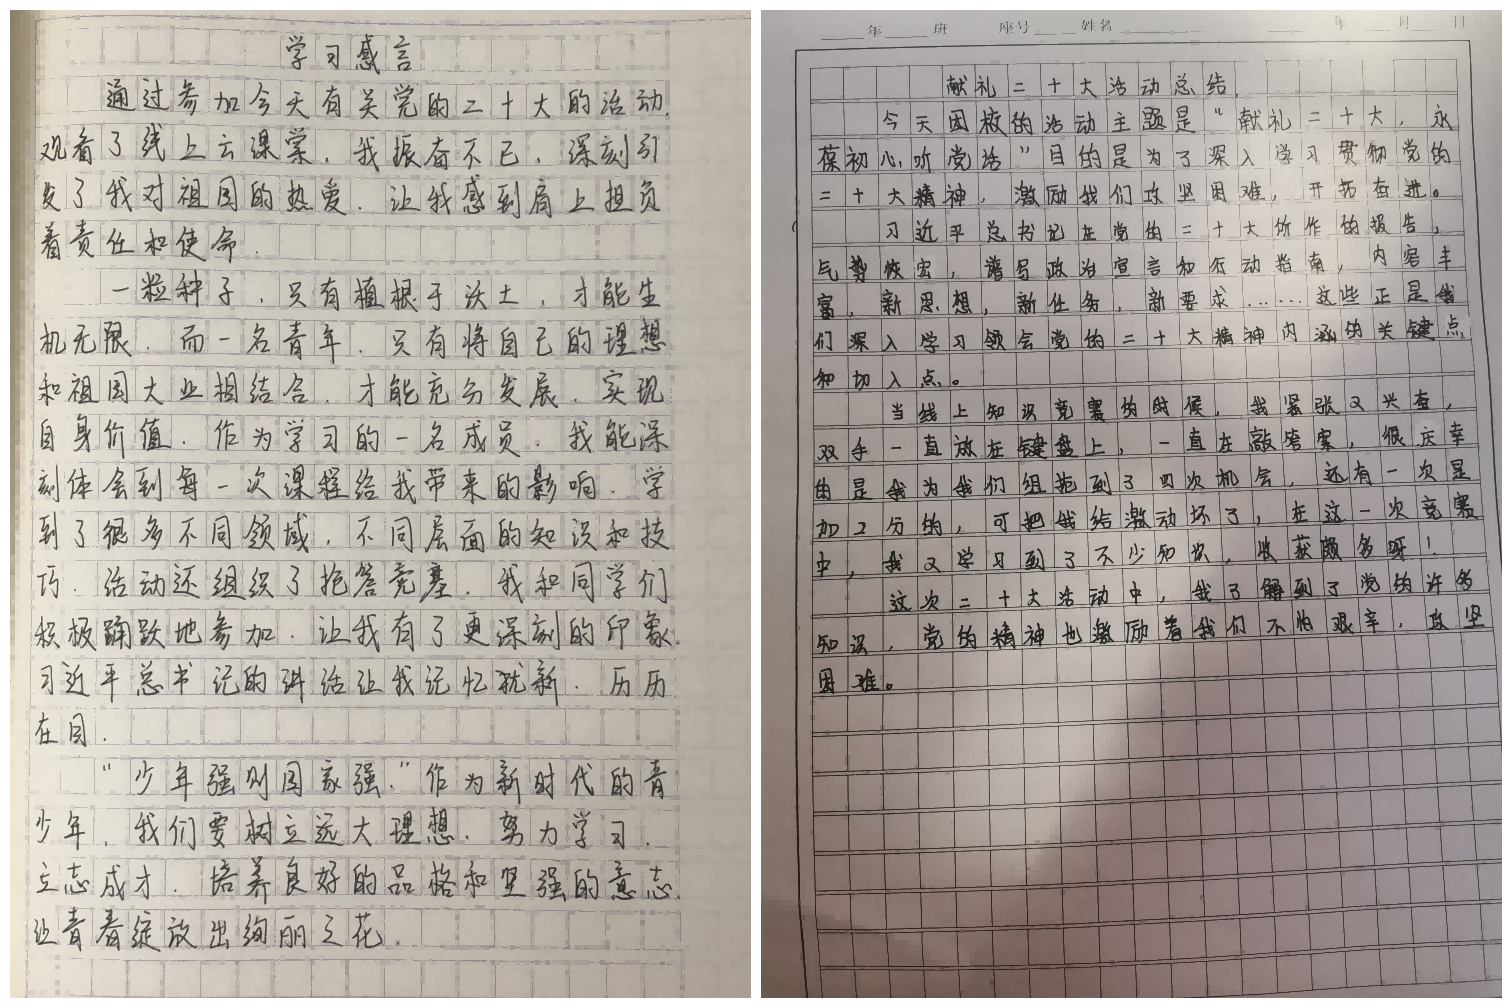 学习感言
通过参加今天有关党的二十大的活动.
观看了线上云课堂.我振奋不已.深刻引
发了我对祖国的热爱.让我感到肩上担负
着责任和使命.
一粒种子.只有植根于沃土.才能生
机无限.而一名青年.只有将自己的理想
和祖国大业相结合.才能充分发展.实现
自身价值.作为学习的一名成员.我能深
刻体会到每一次课程给我带来的影响.学
到了很多不同领域.不同层面的知识和技
巧.活动还组织了抢答竞赛.我和同学们
积极踊跃地参加.让我有了更深刻的印象.
习近平总书记的讲话让我记忆犹新.历历
在目.
"少年强则国家强."作为新时代的青
少年.我们要树立远大理想.努力学习.
立志成才.培养良好的品格和坚强的意志.
让青春绽放出绚丽之花.
年 班 座号 姓名 年 月 日
献礼二十大活动总结.
今天团校的活动主题是"献礼二十大,永
葆初心听党话"目的是为了深入学习贯彻党的
二十大精神,激励我们攻坚困难,开拓奋进。
习近平总书记在党的二十大所作的报告,
气势恢宏,谱写政治宣言和行动指南,内容丰
富,新思想,新任务,新要求……这些正是我
们深入学习领会党的二十大精神内涵的关键点
和切入点。
当线上知识竞赛的时候,我紧张又兴奋,
双手一直放在键盘上,一直在敲答案,很庆幸
的是我为我们组抢到了四次机会,还有一次是
加2分的,可把我给激动坏了,在这一次竞赛
中,我又学习到了不少知识,收获颇多呀!
这次二十大活动中,我了解到了党的许多
知识,党的精神也激励着我们不怕艰辛,攻坚
困难。